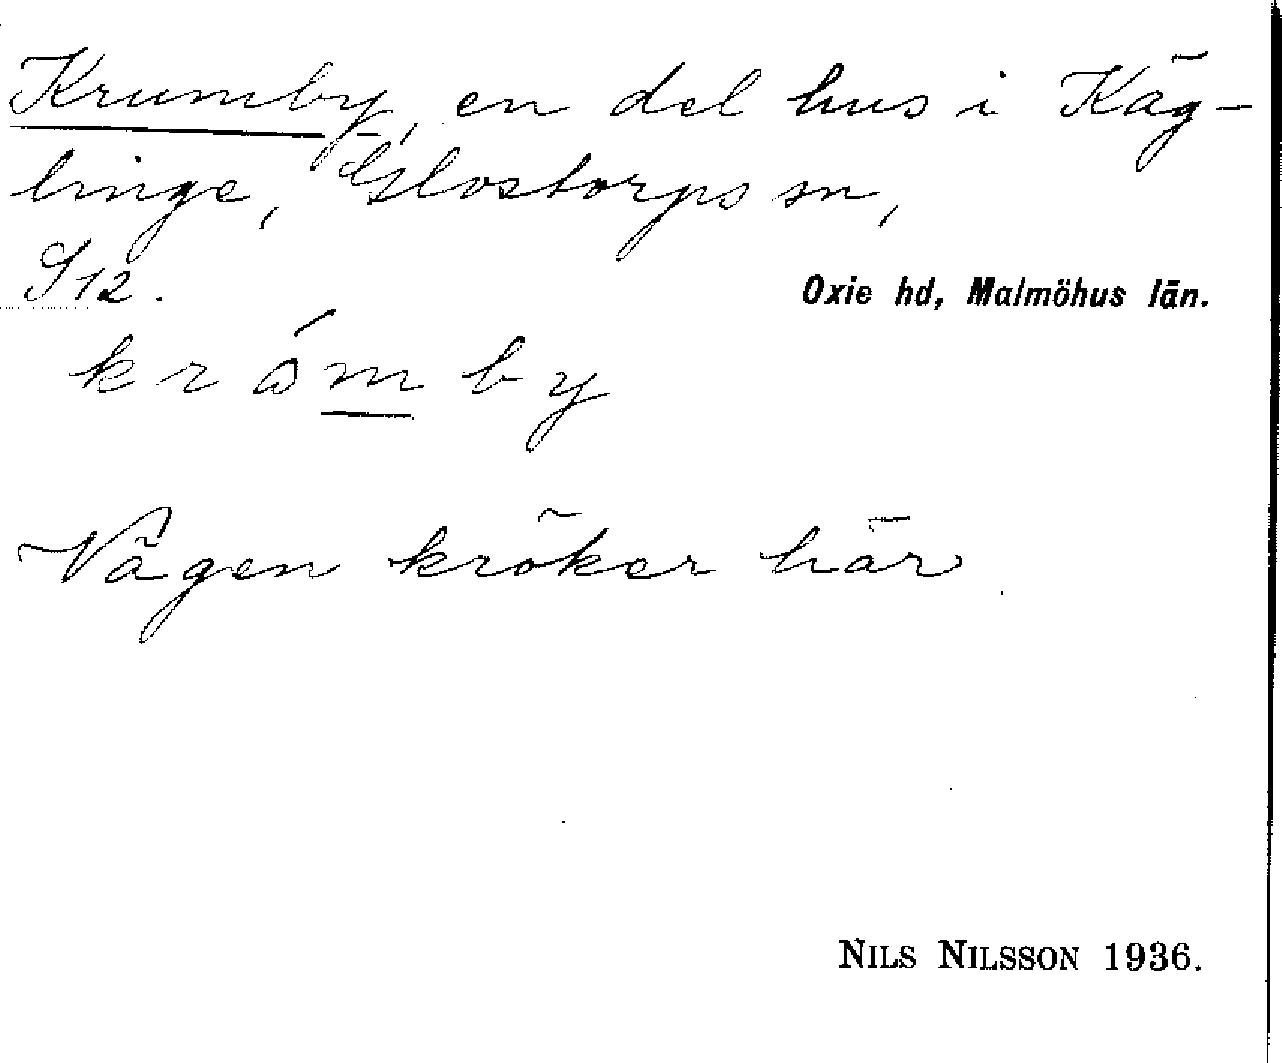 Krumby, en del hus i Käg-
linge, Glostorps sn,
S12.
Oxie hd, Malmöhus län.
krómby
Vägen kröker här
NILS NILSSON 1936.